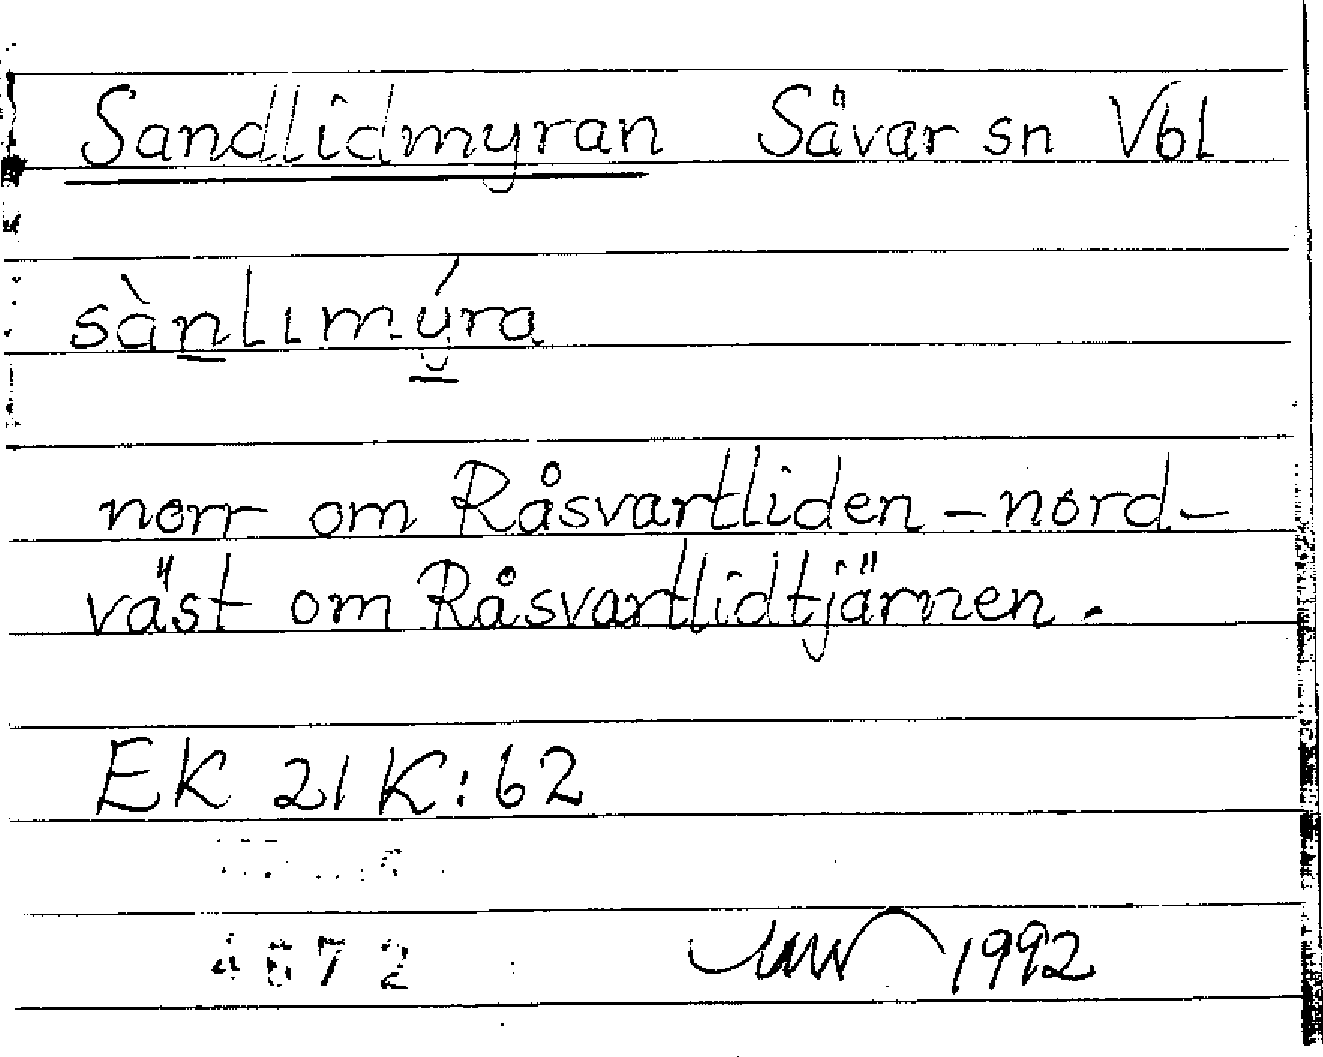 Sandlidmyran Sävar sn Vbl
sànlımýra
norr om Råsvartliden – nord-
väst om Råsvartlidtjärnen.
EK 21 K:62
1992